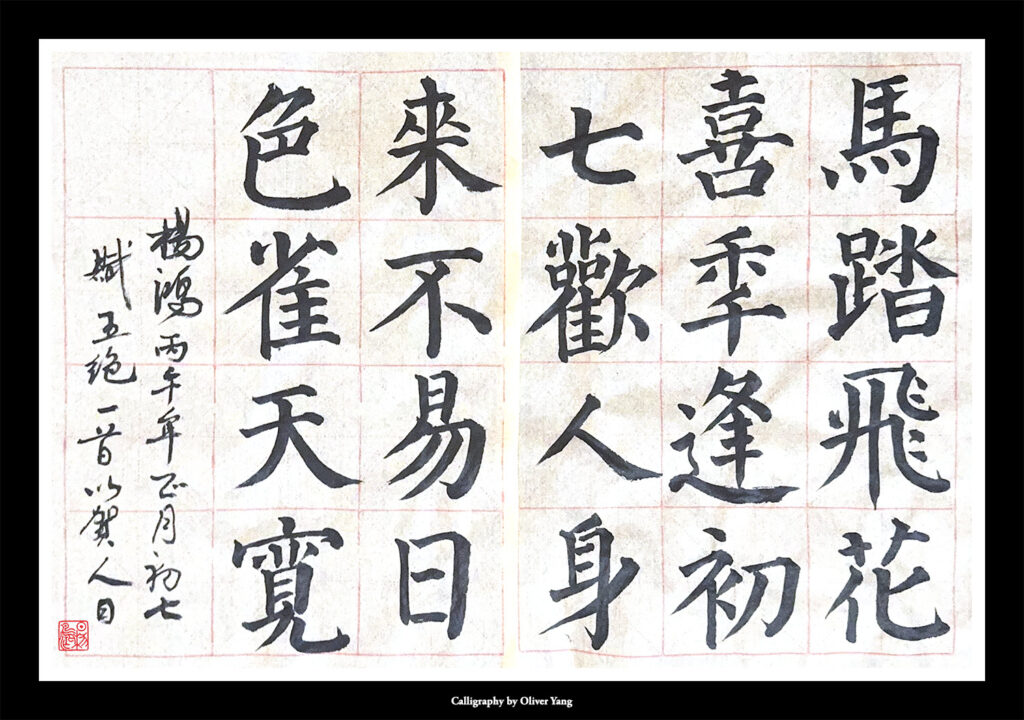 馬踏飛花
喜秊逢初
七歡人身
來不易日
色雀天寬
楊鴻丙午年正月初七
賦五绝一首以賀人日
Calligraphy by Oliver Yang